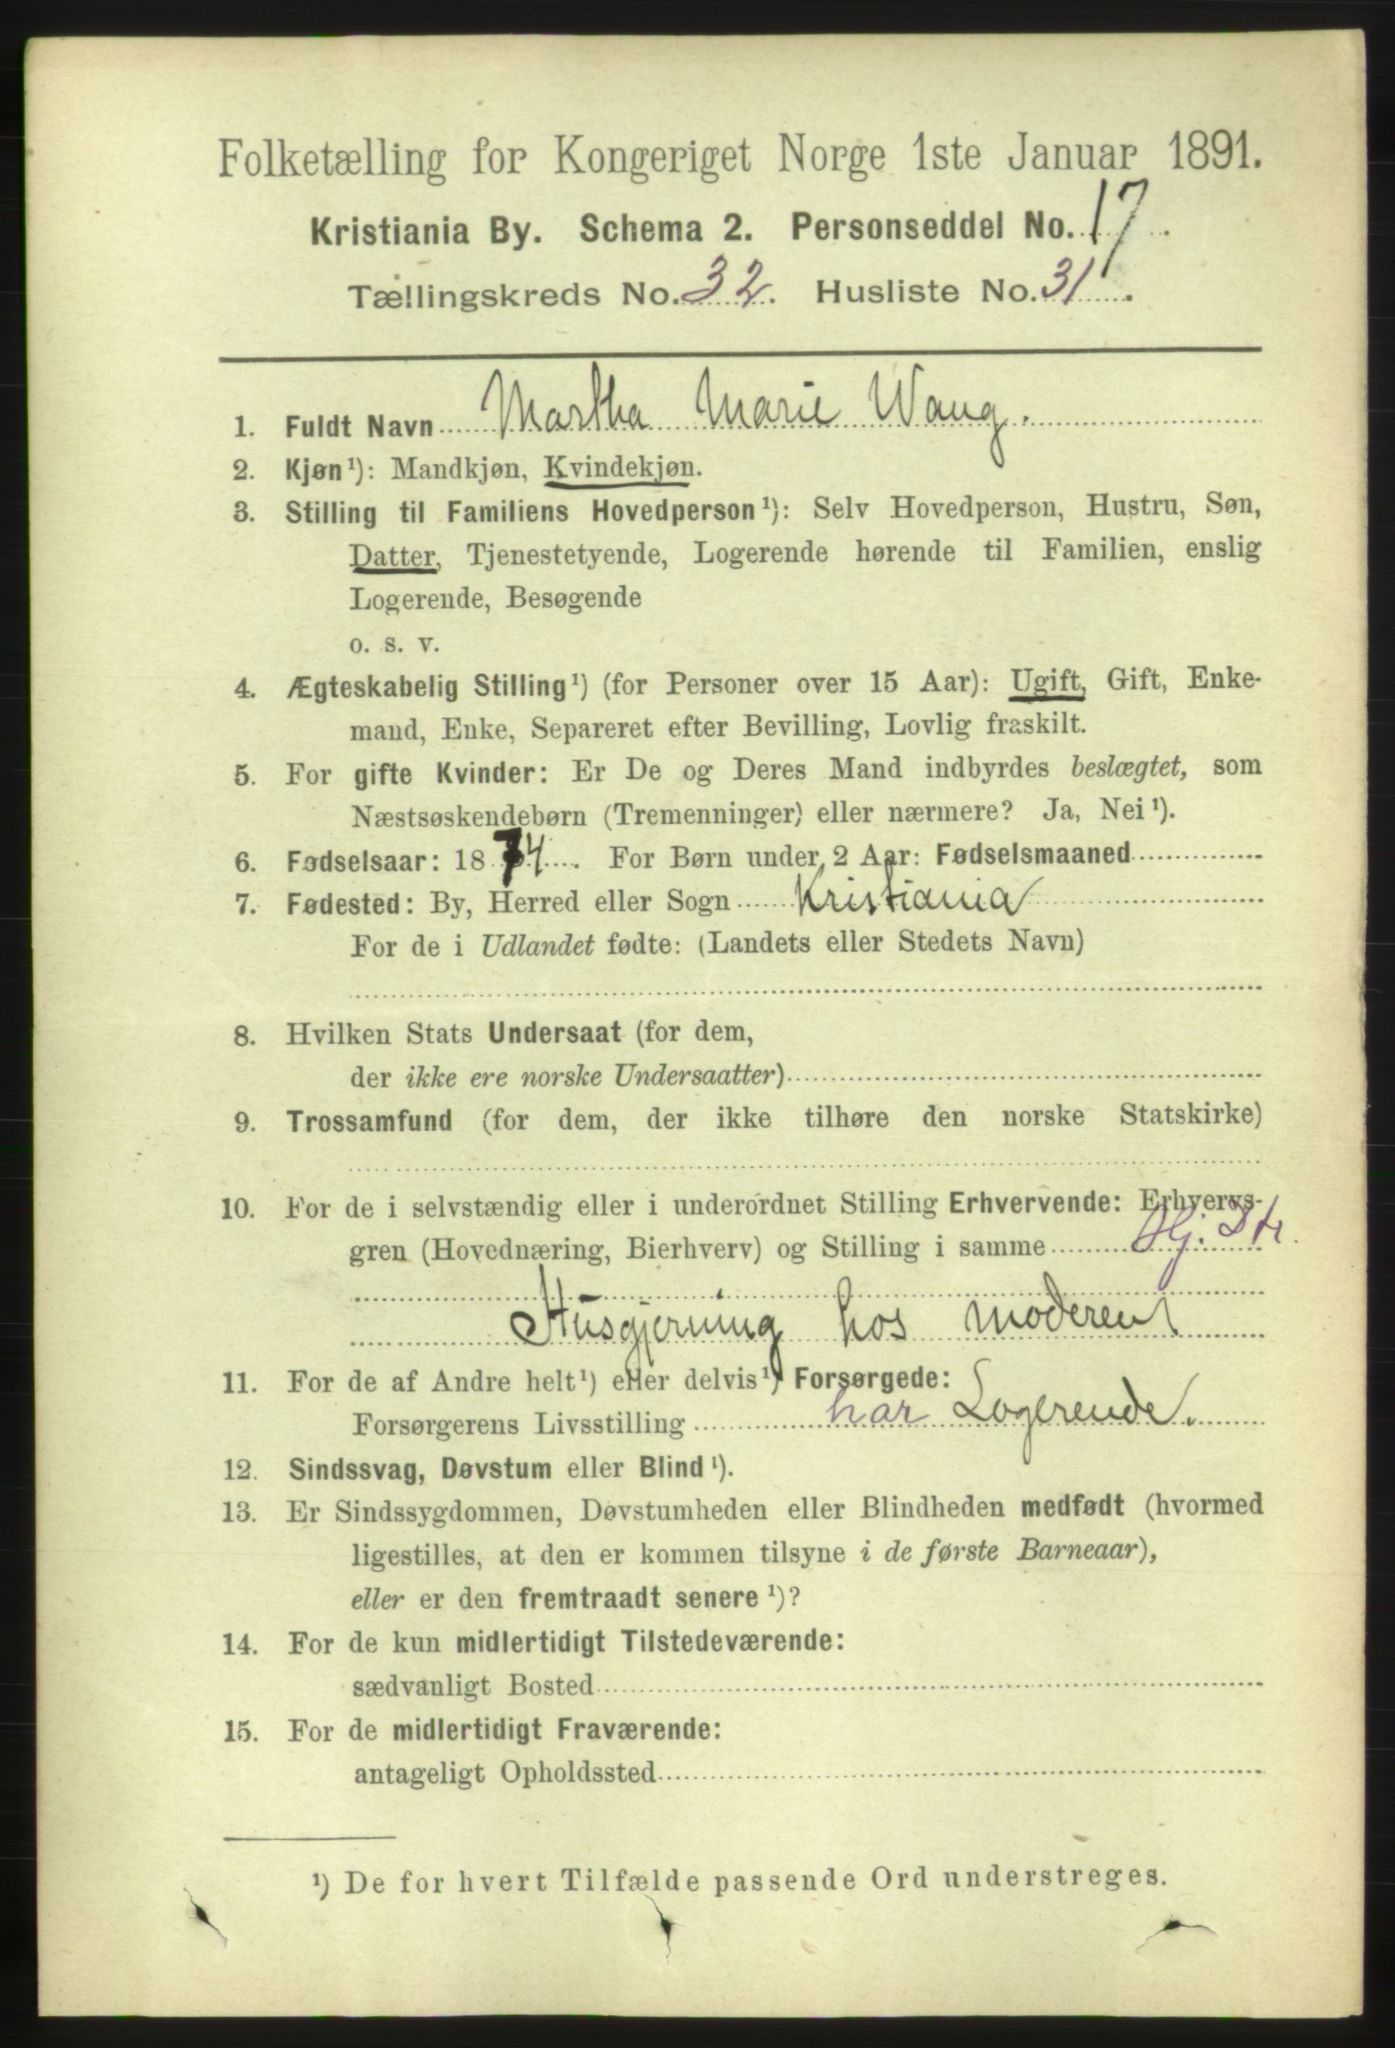 Folketælling for Kongeriget Norge 1ste Januar 1891.
Kristiania By. Schema 2. Personseddel No. 17.
Tællingskreds No. 32. Husliste No. 31.
1. Fuldt Navn Martha Marie Waug.
2. Kjøn¹): Mandkjøn, Kvindekjøn.
3. Stilling til Familiens Hovedperson¹): Selv Hovedperson, Hustru, Søn,
Datter, Tjenestetyende, Logerende hørende til Familien, enslig
Logerende, Besøgende
o. s. v.
4. Ægteskabelig Stilling¹) (for Personer over 15 Aar): Ugift, Gift, Enke-
mand, Enke, Separeret efter Bevilling, Lovlig fraskilt.
5. For gifte Kvinder: Er De og Deres Mand indbyrdes beslægtet, som
Næstsøskendebørn (Tremenninger) eller nærmere? Ja, Nei¹).
6. Fødselsaar: 1874. For Børn under 2 Aar: Fødselsmaaned
7. Fødested: By, Herred eller Sogn Kristiania
For de i Udlandet fødte: (Landets eller Stedets Navn)
8. Hvilken Stats Undersaat (for dem,
der ikke ere norske Undersaatter)
9. Trossamfund (for dem, der ikke tilhøre den norske Statskirke)
10. For de i selvstændig eller i underordnet Stilling Erhvervende: Erhvervs-
gren (Hovednæring, Bierhverv) og Stilling i samme
Husgjerning hos moderen
11. For de af Andre helt¹) eller delvis¹) Forsørgede:
Forsørgerens Livsstilling har Logerende.
12. Sindssvag, Døvstum eller Blind¹).
13. Er Sindssygdommen, Døvstumheden eller Blindheden medfødt (hvormed
ligestilles, at den er kommen tilsyne i de første Barneaar),
eller er den fremtraadt senere¹)?
14. For de kun midlertidigt Tilstedeværende:
sædvanligt Bosted
15. For de midlertidigt Fraværende:
antageligt Opholdssted
¹) De for hvert Tilfælde passende Ord understreges.